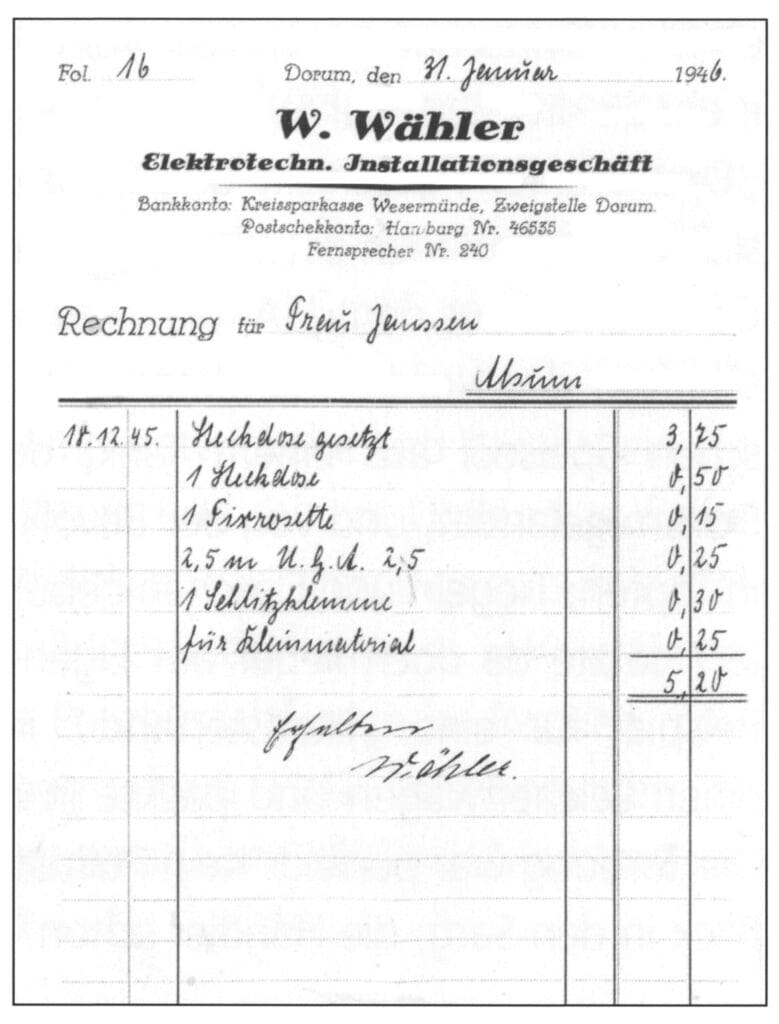 Fol. 16 Dorum, den 31. Januar 1946.
W. Wähler
Elektrotechn. Installationsgeschäft
Bankkonto: Kreissparkasse Wesermünde, Zweigstelle Dorum.
Postschekkonto: Hamburg Nr. 46535
Fernsprecher Nr. 240
Rechnung für Frau Janssen
Alsum
18.12.45. Steckdose gesetzt 3,75
1 Steckdose 0,50
1 Fixrosette 0,15
2,5 m U.G.A. 2,5 0,25
1 Schlitzklemme 0,30
für Kleinmaterial 0,25
5,20
Erhalten
Wähler.